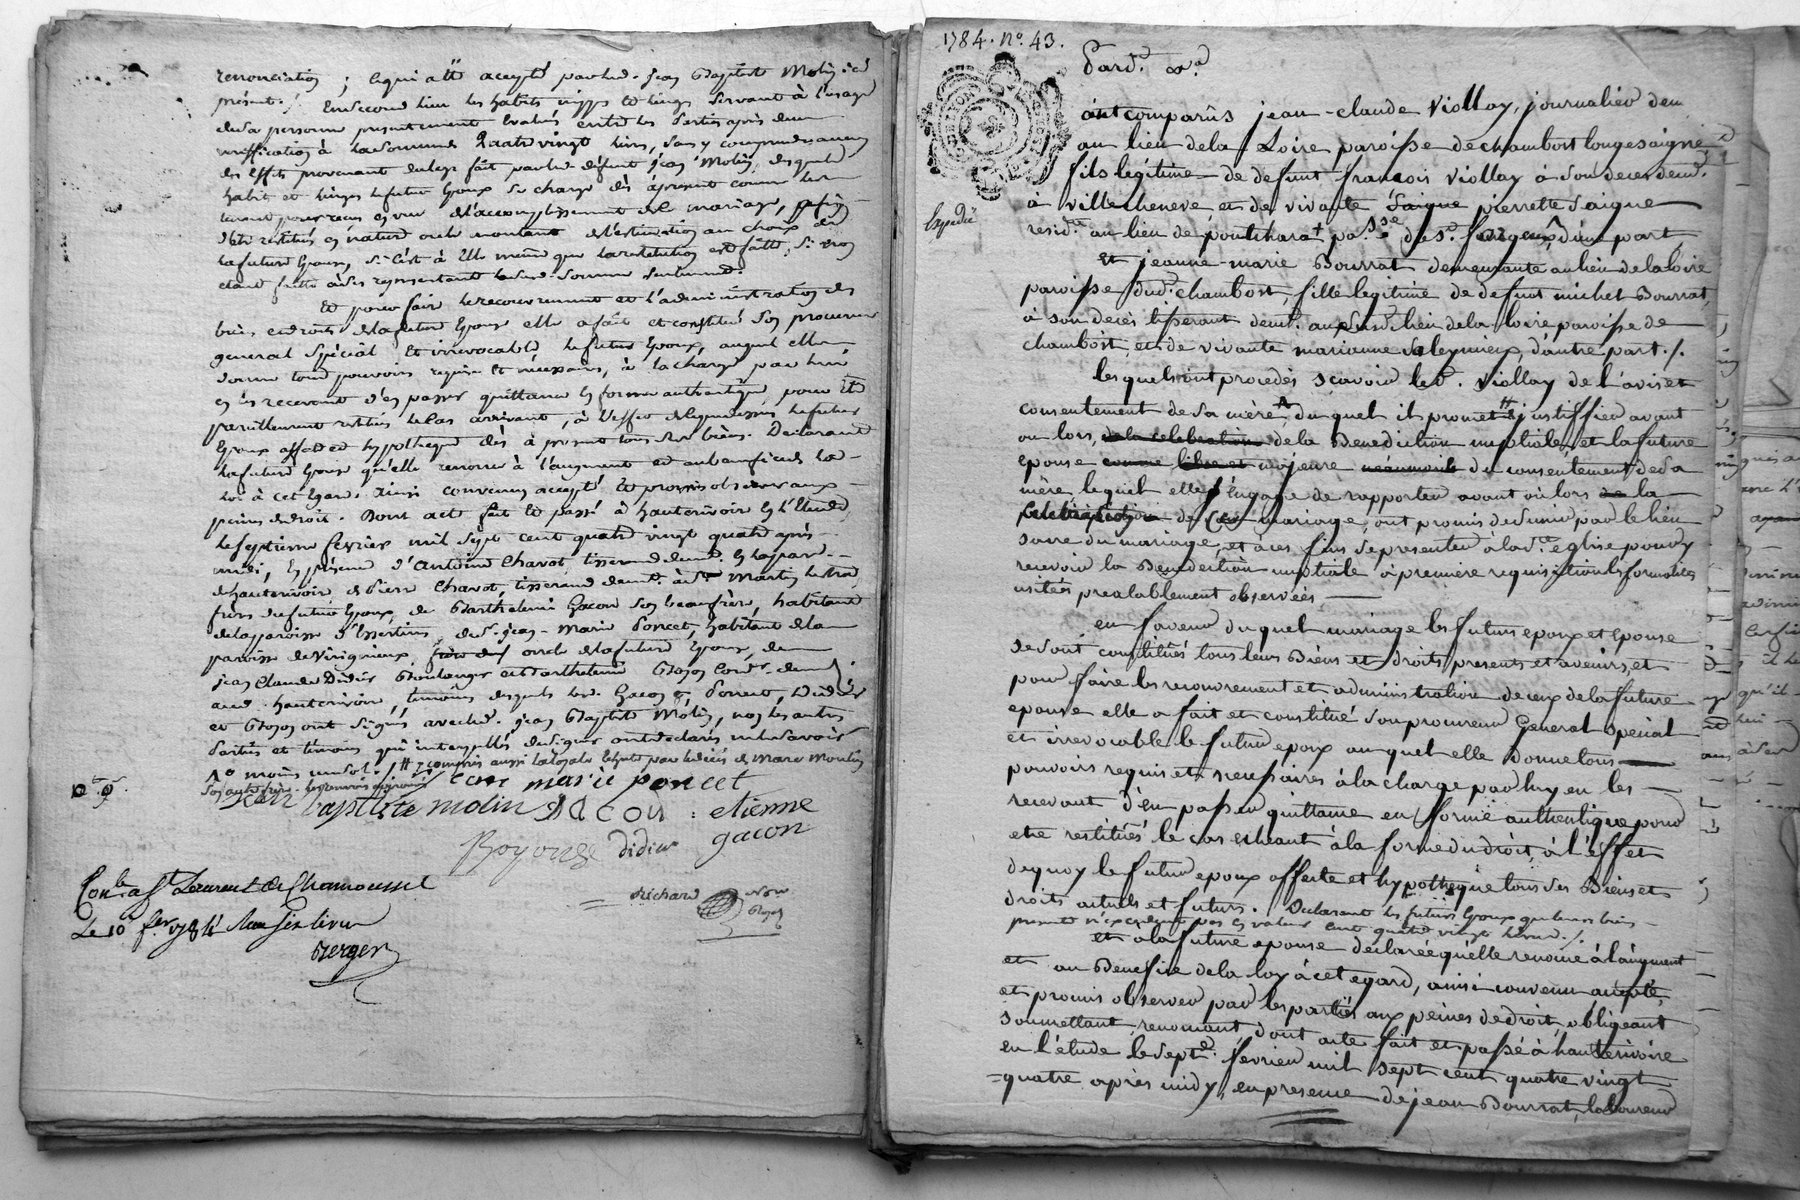 renonciation ; ce qui a été accepté par led. jean Baptiste Molin icy
présent. En second lieu les habits nipps et linges servant à l'usage
de sa personne presentement évalués entre les parties après deue
veriffication à la somme de quatre vingt livres, sans y comprendre aucun
des effets provenant du legs fait par led. défunt jean Molin, desquels
habit et linges le futur époux se charge dès àpresent comme les
ayant pour reçus en vue de l'accomplissement de mariage, affin
d'être restitués en nature ou le montant de l'estimation au choix de
la future épouse, si c'est à elle même que la restitution est faitte, si non
étant faitte à ses representants lad. somme seulement.
Et pour faire le recouvrement et l'administration des
biens et droits de la future épouse elle a fait et constitué son procureur
general spécial et irrevocable le futur époux, auquel elle
donne tout pouvoirs requis et nécessaires, à la charge par lui
en les recevant d'en passer quittance en forme authentique, pour être
pareillement restitués le cas arrivant, à l'effet de quoy led. futur
époux affecte et hypotheque dès à present tous ses biens. Declarant
la future épouse qu'elle renonce à l'augment et au benefice de la
loi à cet égard. Ainsi convenu accepté et promis observer aux
peines de droit. Dont acte fait et passé à hauterivoire en l'étude
le septieme fevrier mil sept cent quatre vingt quatre après
midi, en présence d'antoine Chavot, tisserand demt. en la par.
d'hauterivoire, de Pierre Chavot, tisserand demt. à St. Martin lestrat
frères du futur époux, de Barthelemi Gacon son beaufrère, habitant
de la paroisse d'Essertines, de Sr. jean-Marie Poncet, habitant de la
paroisse de Virignieux, oncle de la future épouse, de
jean Claude Didier Boulanger et Barthelemi Boyon Cord.er dem.
aud. hauterivoire, temoins desquels led. Gacon & Poncet, Didier
et Boyon ont signés avec led. jean Baptiste Molin, non les autres
parties et témoins qui interpellés de signer ont declarés ne le savoir
jean marie poncet
jean baptiste molin GACON : etienne
gacon
Boyon didier
Richard
Conlé a St Laurent de Chamousset
Le 10 fer 1784 Reçu six livres
Berger
1784. No. 43.
Pard.
Expedié
ont comparûs jean-claude Viollay, journalier dem
au lieu de la Loire paroisse de chambost longesaigne
fils légitime de defunt francois Viollay à son deces demt.
à villecheneve, et de vivante pierrette Saigne
resid.te au lieu de pontchara par.sse de St. forgeux d'une part,
et jeanne-marie Bourrat demeurante au lieu de la loire
paroisse dud. chambost, fille legitime de defunt michel Bourrat,
à son deces tisserant demt. au susd. lieu de la loire paroisse de
chambost, et de vivante marianne Seleymieux, d'autre part ./.
lesquels ont procedés scavoir led. Viollay de l'avis et
consentement de sa mère duquel il promet justiffier avant
ou lors de la celebration de la Benediction nuptiale, et la future
epouse comme libre et majeure neanmoins du consentement de sa
mère lequel elle s'engage de rapporter avant ou lors de la
celebration de leur mariage, ont promis de s'unir par le lien
sacré du mariage, et à ces fins se presenter à la Ste. eglise pour y
recevoir la Benediction nuptiale à premiere requisition les formalités
usitées prealablement observées
en faveur duquel mariage les futurs epoux et epouse
se sont constitués tous leurs Biens et droits presents et avenirs, et
pour faire les recouvrement et administration de ceux de la future
epouse elle a fait et constitué son procureur General special
et irrevocable le futur epoux auquel elle donne tous
pouvoirs requis et necessaires à la charge par luy en les
recevant d'en passer quittance en forme authentique pour
etre restitués le cas echeant à la forme du droit, à l'effet
de quoy le futur epoux affecte et hypotheque tous ses Biens et
droits actuels et futurs. Declarant les futurs époux que leurs biens
presents n'excedent pas en valeur cent quatre vingt livres ./.
et a la future epouse declaré qu'elle renonce à l'augment
et au Benefice de la loy à cet egard, ainsi convenu accepté,
et promis observer par les parties aux peines de droit, obligeant
soumettant, renonçant, dont acte fait et passé à hauterivoire
en l'étude le sept.e fevrier mil sept cent quatre vingt
=quatre après midy, en presence de jean Bourrat, laboureur